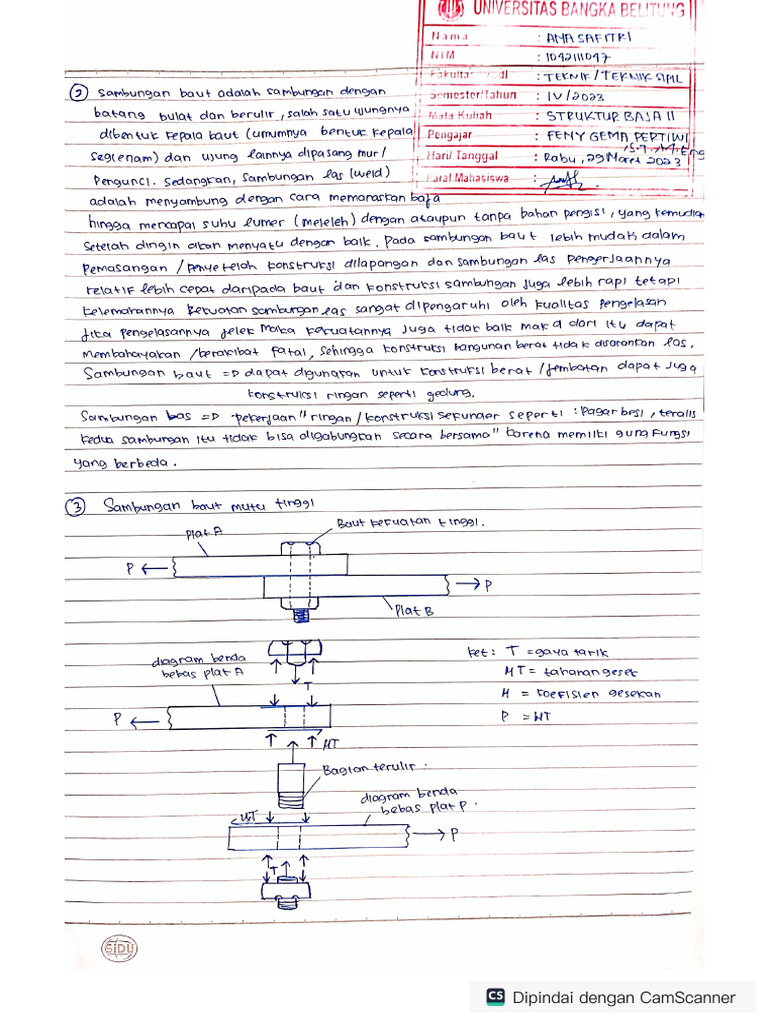 UNIVERSITAS BANGKA BELITUNG
Nama : ANA SAFITRI
NIM : 1042111047
Fakultas/Prodi : TEKNIK / TEKNIK SIPIL
Semester/Tahun : IV / 2023
Mata Kuliah : STRUKTUR BAJA II
Pengajar : FENY GEMA PERTIWI
S.T., M.Eng
Hari/Tanggal : Rabu, 29 Maret 2023
Paraf Mahasiswa :
② Sambungan baut adalah sambungan dengan
batang bulat dan berulir, salah satu ujungnya
dibentuk kepala baut (umumnya bentuk kepala
segienam) dan ujung lainnya dipasang mur/
pengunci. Sedangkan, Sambungan las (weld)
adalah menyambung dengan cara memanaskan baja
hingga mencapai suhu lumer (meleleh) dengan ataupun tanpa bahan pengisi, yang kemudian
setelah dingin akan menyatu dengan baik. Pada sambungan baut lebih mudah dalam
pemasangan / penyetelah konstruksi dilapangan dan sambungan las pengerjaannya
relatif lebih cepat daripada baut dan konstruksi sambungan juga lebih rapi tetapi
kelemahannya kekuatan sambungan las sangat dipengaruhi oleh kualitas pengelasan
jika pengelasannya jelek maka kekuatannya juga tidak baik maka dari itu dapat
membahayakan /berakibat fatal, sehingga konstruksi bangunan berat tidak disarankan las.
Sambungan baut => dapat digunakan untuk konstruksi berat / jembatan dapat juga
konstruksi ringan seperti gedung.
Sambungan las => pekerjaan" ringan / konstruksi sekunder seperti : Pagar besi, teralis
kedua sambungan itu tidak bisa digabungkan secara bersama" karena memiliki guna fungsi
yang berbeda.
③ Sambungan baut mutu tinggi
Plat A
Baut kekuatan tinggi.
P
P
Plat B
diagram benda
bebas plat A
T
ket: T = gaya tarik
MT = tahanan geser
M = Koefisien gesekan
P = MT
P
MT
Bagian terulir.
diagram benda
bebas plat P.
MT
P
T
SIDU
CS Dipindai dengan CamScanner